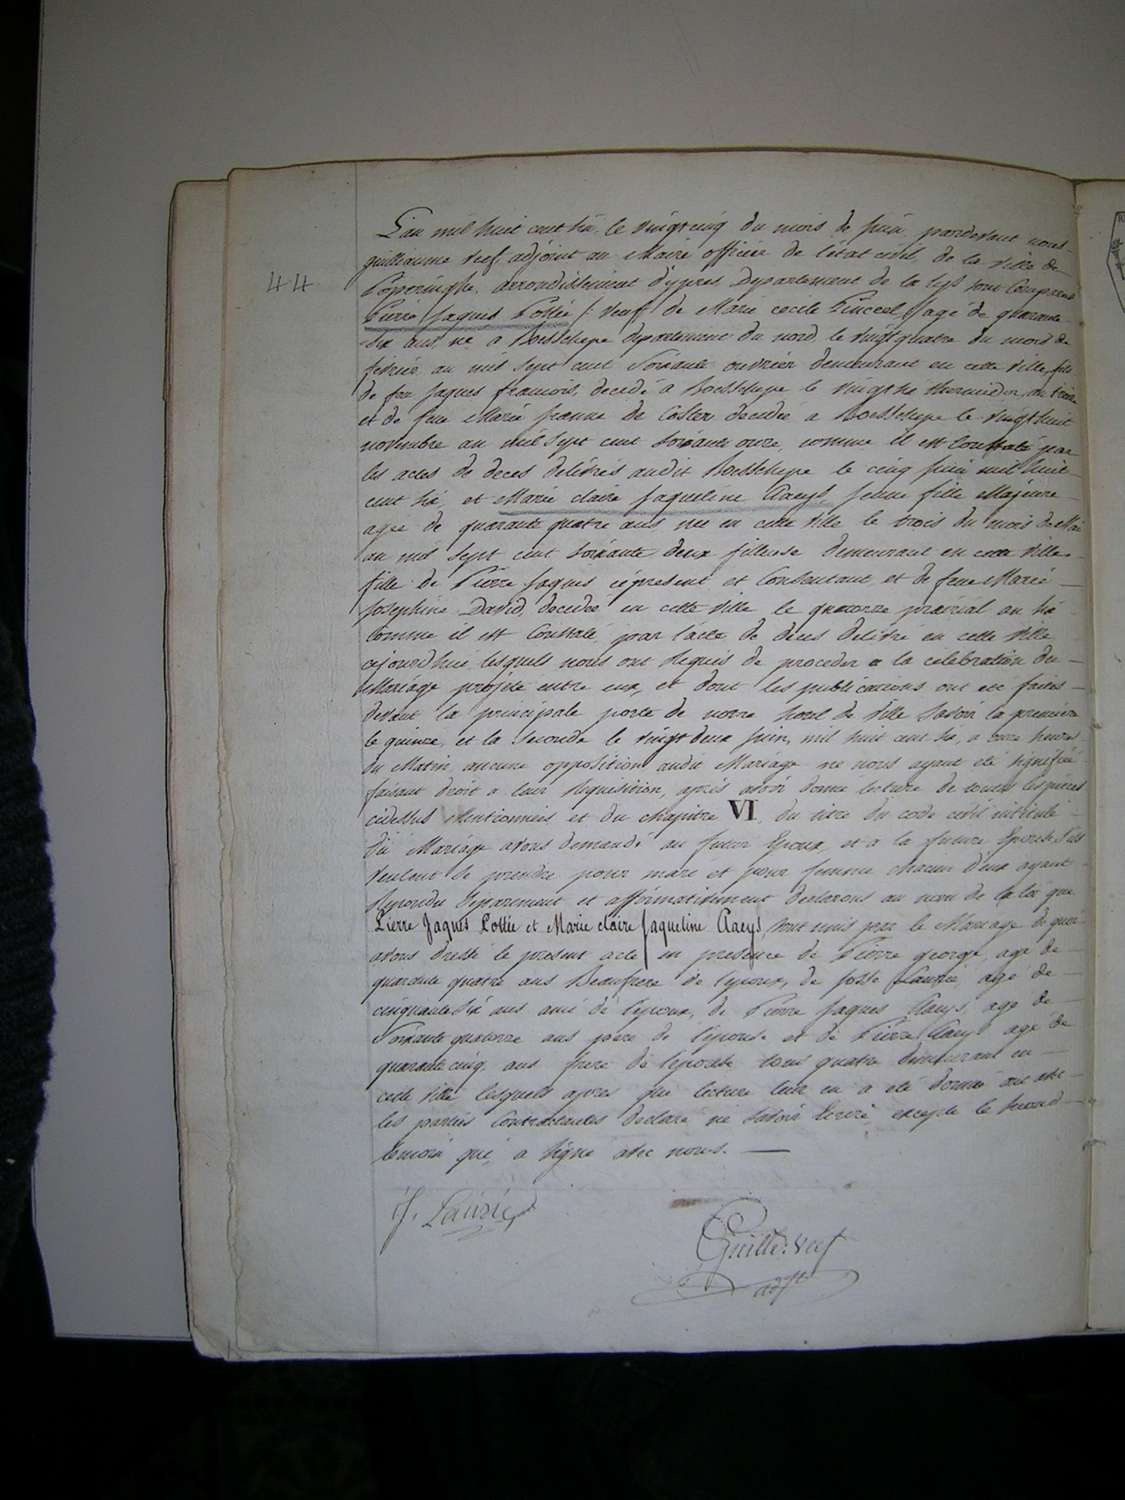 44
L'an mil huit cent six le vingt cinq du mois de juin pardevant nous
guillaume Veef adjoint au Maire officier de l'état civil de la ville de
Poperinghe arrondissement d'ypres Departement de la Lys sont comparus
Pierre Jaques Pottie /: veuf de Marie cecile agé de quarante
six ans né a Boesschepe departement du nord le vingt quatre du mois de
fevrier an mil sept cent soixante ouvrier demeurant en cette ville fils
de feu Jaques francois, decedé a Boesschepe le thermidor an
et de feue Marie Jeanne de Coster decedée a Boesschepe le vingt huit
novembre an mil sept cent soixante onze, comme il est constaté par
les actes de deces delivrés audit Boesschepe le cinq juin mil huit
cent six et Marie claire Jaqueline Claeys, jeune fille Majeure
agée de quarante quatre ans née en cette ville le trois du mois de Mai
an mil sept cent soixante deux fileuse demeurant en cette ville
fille de Pierre Jaques ci present et consentant et de feue Marie
Josephine David decedée en cette ville le quatorze prairial an six
comme il est constaté par l'acte de deces delivré en cette ville
cejourdhui lesquels nous ont requis de proceder a la célébration du
Mariage projetté entre eux, et dont les publications ont été faites
devant la principale porte de notre hotel de ville savoir la premiere
le quinze et la seconde le vingt deux juin, mil huit cent six, a onze heures
du Matin, aucune opposition audit Mariage ne nous ayant été signifiée
faisant droit a leur requisition, après avoir donné lecture de toutes les pieces
cidessus mentionnées et du chapitre VI du titre du code civil intitulé
du Mariage avons demandé au futur Epoux, et a la future Epouse s'ils
veulent se prendre pour mari et pour femme chacun d'eux ayant
repondu separement et affirmativement declarons au nom de la loi que
Pierre Jaques Pottie et Marie claire Jaqueline Claeys, sont unis par le Mariage de quoi
avons dressé le present acte en presence de Pierre george, agé de
quarante quatre ans Beaufrere de l'epoux, de agé de
cinquante six ans ami de l'epoux, de Pierre Jaques Claeys, agé de
soixante quatorze ans pere de l'epouse et de Pierre Claeys agé de
quarante cinq ans frere de l'epouse tous quatre demeurant en
cette ville lesquels apres que lecture leur en a été donnée ont et
les parties contractantes declaré ne savoir écrire, excepté le second
temoin qui a signé avec nous.
Guille. Veef
adjt